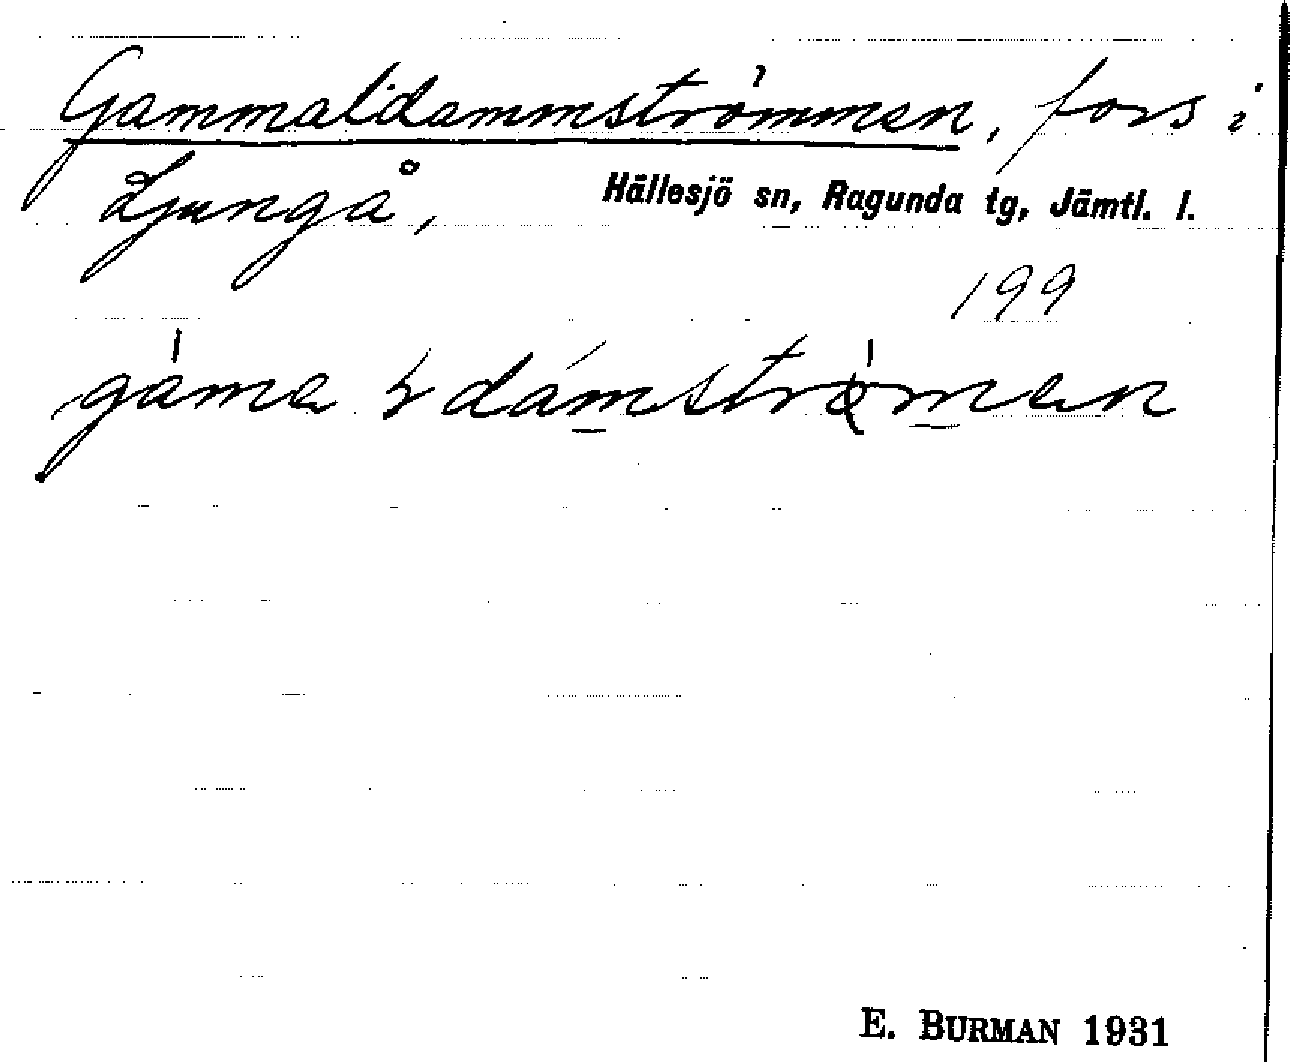 Gammaldammströmmen, fors i
Ljungå, Hällesjö sn, Ragunda tg, Jämtl. l.
199
E. BURMAN 1931